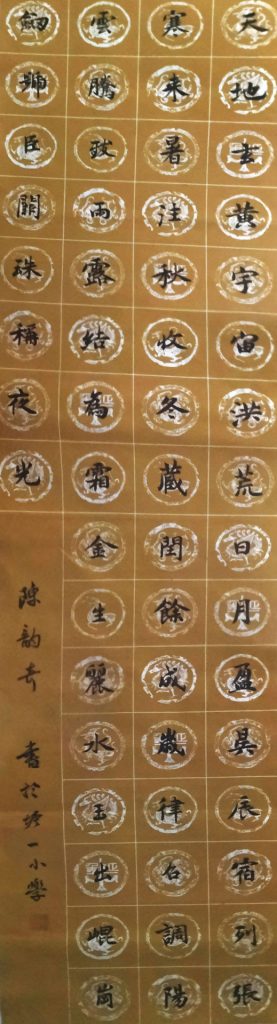 天地玄黃宇宙洪荒日月盈昃辰宿列張
寒来暑往秋收冬藏閏餘成歲律呂調陽
雲騰致雨露結為霜金生麗水玉出崐崗
劒號臣闕珠稱夜光
陳韵奇 書於塘一小學